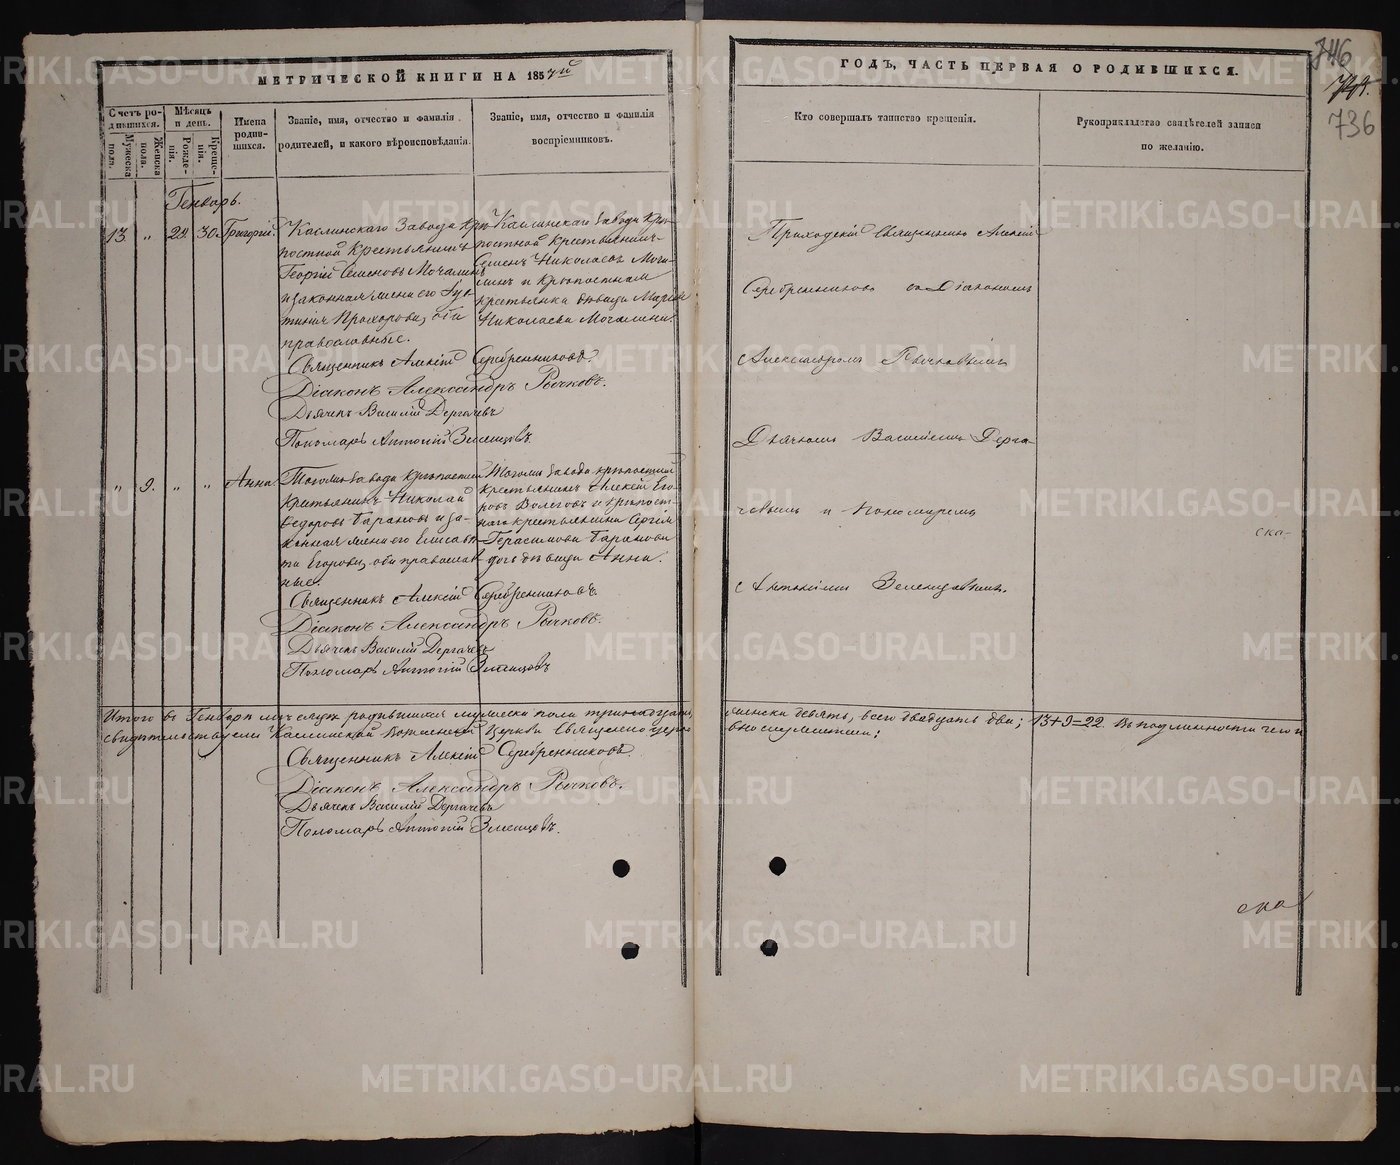 МЕТРИЧЕСКОЙ КНИГИ НА 1857й
Счетъ родившихся.
Мужеска пола.
Женска пола.
Мѣсяцъ и день.
Рожденія.
Крещенія.
Имена родившихся.
Званіе, имя, отчество и фамилія родителей, и какого вѣроисповѣданія.
Званіе, имя, отчество и фамилія воспріемниковъ.
Генварь.
13 " 24 30 Григорій.
Каслинскаго Завода Крѣпостной Крестьянинъ
Георгій Семеновъ Мочалинъ
и законная жена его
Прохорова, оба
православные.
Каслинскаго Завода Крѣпостной Крестьянинъ
Семенъ Николаевъ
и Крѣпостная
крестьянка дѣвица Марія
Николаева Мочалина.
Священникъ Алексій Серебренниковъ.
Діаконъ Александръ Рычковъ.
Дьячекъ Василій Дергачевъ
Пономарь Антоній Зеленцовъ.
" 9. " " Анна
Тогоже Завода Крѣпостной
Крестьянинъ Николай
Ѳедоровъ Барановъ и законная жена его Елисавета
Егорова, оба православные.
Тогоже Завода крѣпостной
крестьянинъ Алексѣй Егоровъ
и крѣпостнаго крестьянина Сергія
Герасимова Баранова
дочь дѣвица Анна.
Священникъ Алексій Серебренниковъ.
Діаконъ Александръ Рычковъ.
Дьячекъ Василій Дергачевъ
Пономарь Антоній Зеленцовъ
Итого въ Генварѣ мѣсяцѣ родившихся мужеска пола тринадцать,
свидѣтельствуемъ Каслинской Церкви Священноцерко
Священникъ Алексій Серебренниковъ.
Діаконъ Александръ Рычковъ.
Дьячекъ Василій Дергачевъ
Пономарь Антоній Зеленцовъ.
ГОДЪ, ЧАСТЬ ПЕРВАЯ О РОДИВШИХСЯ.
746
736
Кто совершалъ таинство крещенія.
Рукоприкладство свидѣтелей записи
по желанію.
Приходскій Священникъ Алексій
Серебренниковъ съ Діакономъ
Александромъ Рычковымъ
Дьячкомъ Василіемъ Дерга-
чевымъ и Пономаремъ
Антоніемъ Зеленцовымъ.
ска-
женска девять, всего двадцать два; 13+9=22. Въ подлинности чего и
вно служители:
ска
METRIKI.GASO-URAL.RU